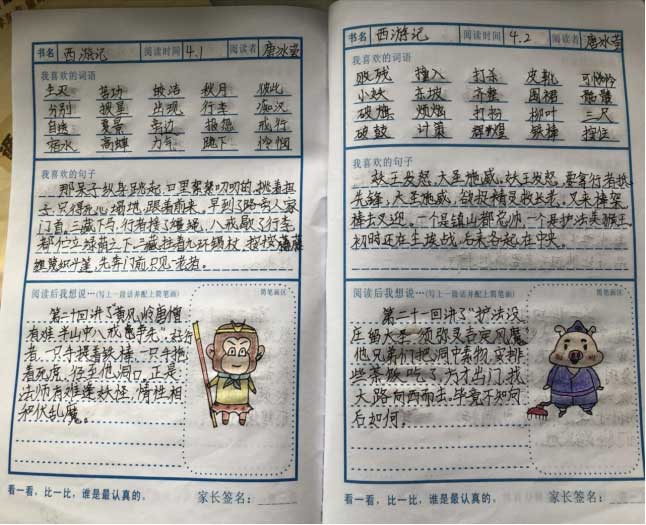 书名 西游记 阅读时间 4.1 阅读者 唐冰莹
我喜欢的词语
生灭 苦功 皎洁 秋月 彼此
分别 披星 出现 行李
自途 复景
高蝉 力气 跪下 怜悯
我喜欢的句子
那呆子纵身跳起,口里絮絮叨叨的,挑着担
子,只得死心塌地,跟着前来。早到了路旁人家
门首,三藏下马,行者接了缰绳,八戒歇了行李,
都伫立绿荫之下。三藏拄着九环锡杖,按按
先奔门前,只见一老者
阅读后我想说…(写上一段话并配上简笔画)
简笔画区
第二十回讲了“黄风岭唐僧
有难,半山中八戒争先”。好行
者,一只手提着铁棒,一只手拖
着死虎,径至他洞口。正是:
法师有难逢妖怪,情性相
和伏乱魔。
看一看,比一比,谁是最认真的。
家长签名:
书名 西游记 阅读时间 4.2 阅读者 唐冰莹
我喜欢的词语
败残 撞入 打杀 皮靴 可怜
小妖 东坡 齐整 围裙 骷髅
破旗 烦恼 打扮 柳叶 三尺
破鼓 计策 辉煌 铁棒
我喜欢的句子
妖王发怒,大圣施威。妖王发怒,要拿行者抵
先锋;大圣施威,欲捉精灵救长老。叉来棒架,
棒去叉迎。一个是镇山都总帅,一个是护法美猴王。
初时还在尘埃战,后来各起在中央。
阅读后我想说…(写上一段话并配上简笔画)
简笔画区
第二十一回讲了“护法设
庄留大圣,须弥灵吉定风魔”
他兄弟们把洞中素物,安排
些茶饭吃了,方才出门,找
大路向西而去。毕竟不知向
后如何。
看一看,比一比,谁是最认真的。
家长签名: